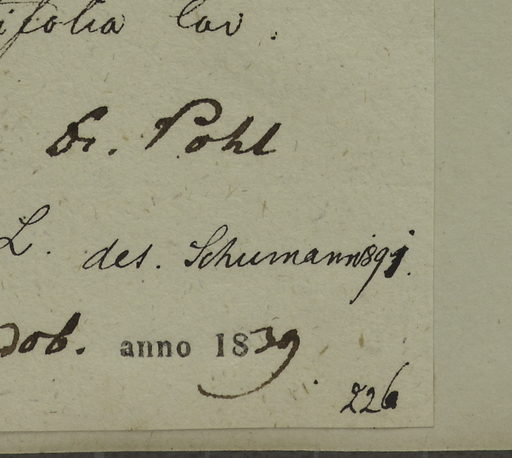 ifolia Cav.
Dr. Pohl
L. des. Schumann 1891.
dob. anno 1839
226